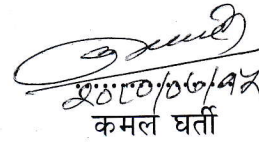 २०८०/०७/१५
कमल घर्ती